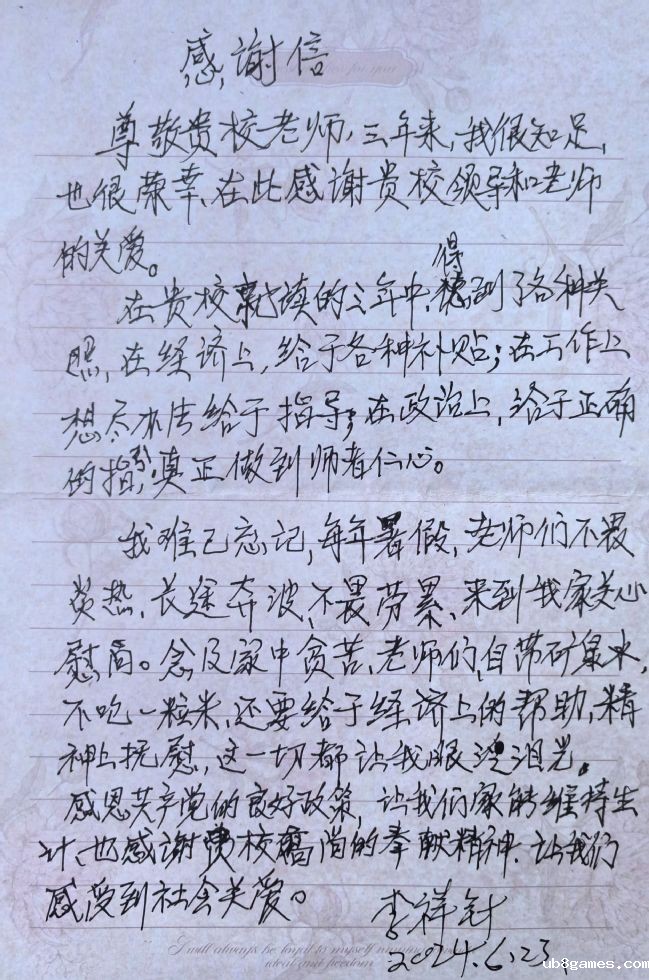 感谢信
尊敬贵校老师,三年来,我很知足,
也很荣幸、在此感谢贵校领导和老师
的关爱。
在贵校就读的三年中,得到了各种关
照,在经济上,给于各种补贴;在工作上
想尽办法给于指导;在政治上,给于正确
的指引,真正做到师者仁心。
我难已忘记,每年暑假,老师们不畏
炎热,长途奔波,不畏劳累、来到我家关心
慰问。念及家中贫苦、老师们,自带矿泉水,
不吃一粒米,还要给于经济上的帮助,精
神上抚慰,这一切都让我眼泪光。
感恩共产党的良好政策,让我们家能维持生
计、也感谢贵校高尚的奉献精神、让我们
感受到社会关爱。
李祥针
2024.6.23.
I will always be loyal to myself
ideal and freedom
ub8games.com